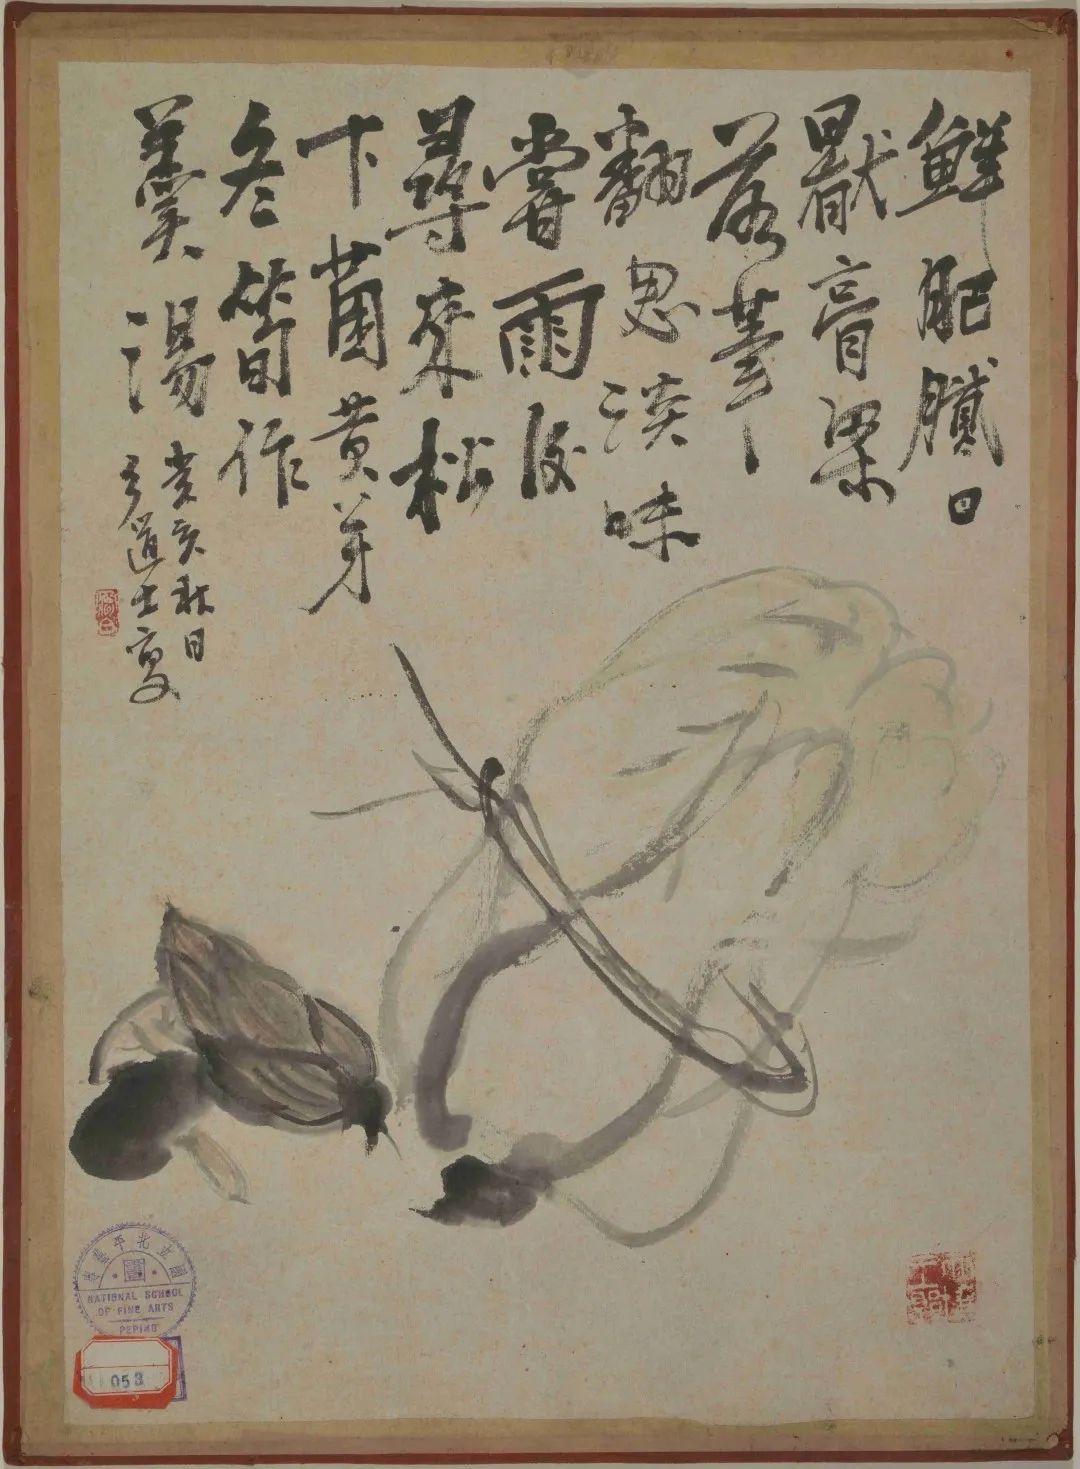 鮮肥膩口
猒膏粱
落箸
翻思淡味
嘗雨後
尋來松
下菌黃芽
冬筍作
羹湯
癸亥秋日
道士寫
國立北平藝專
NATIONAL SCHOOL
OF FINE ARTS
PEPING
053